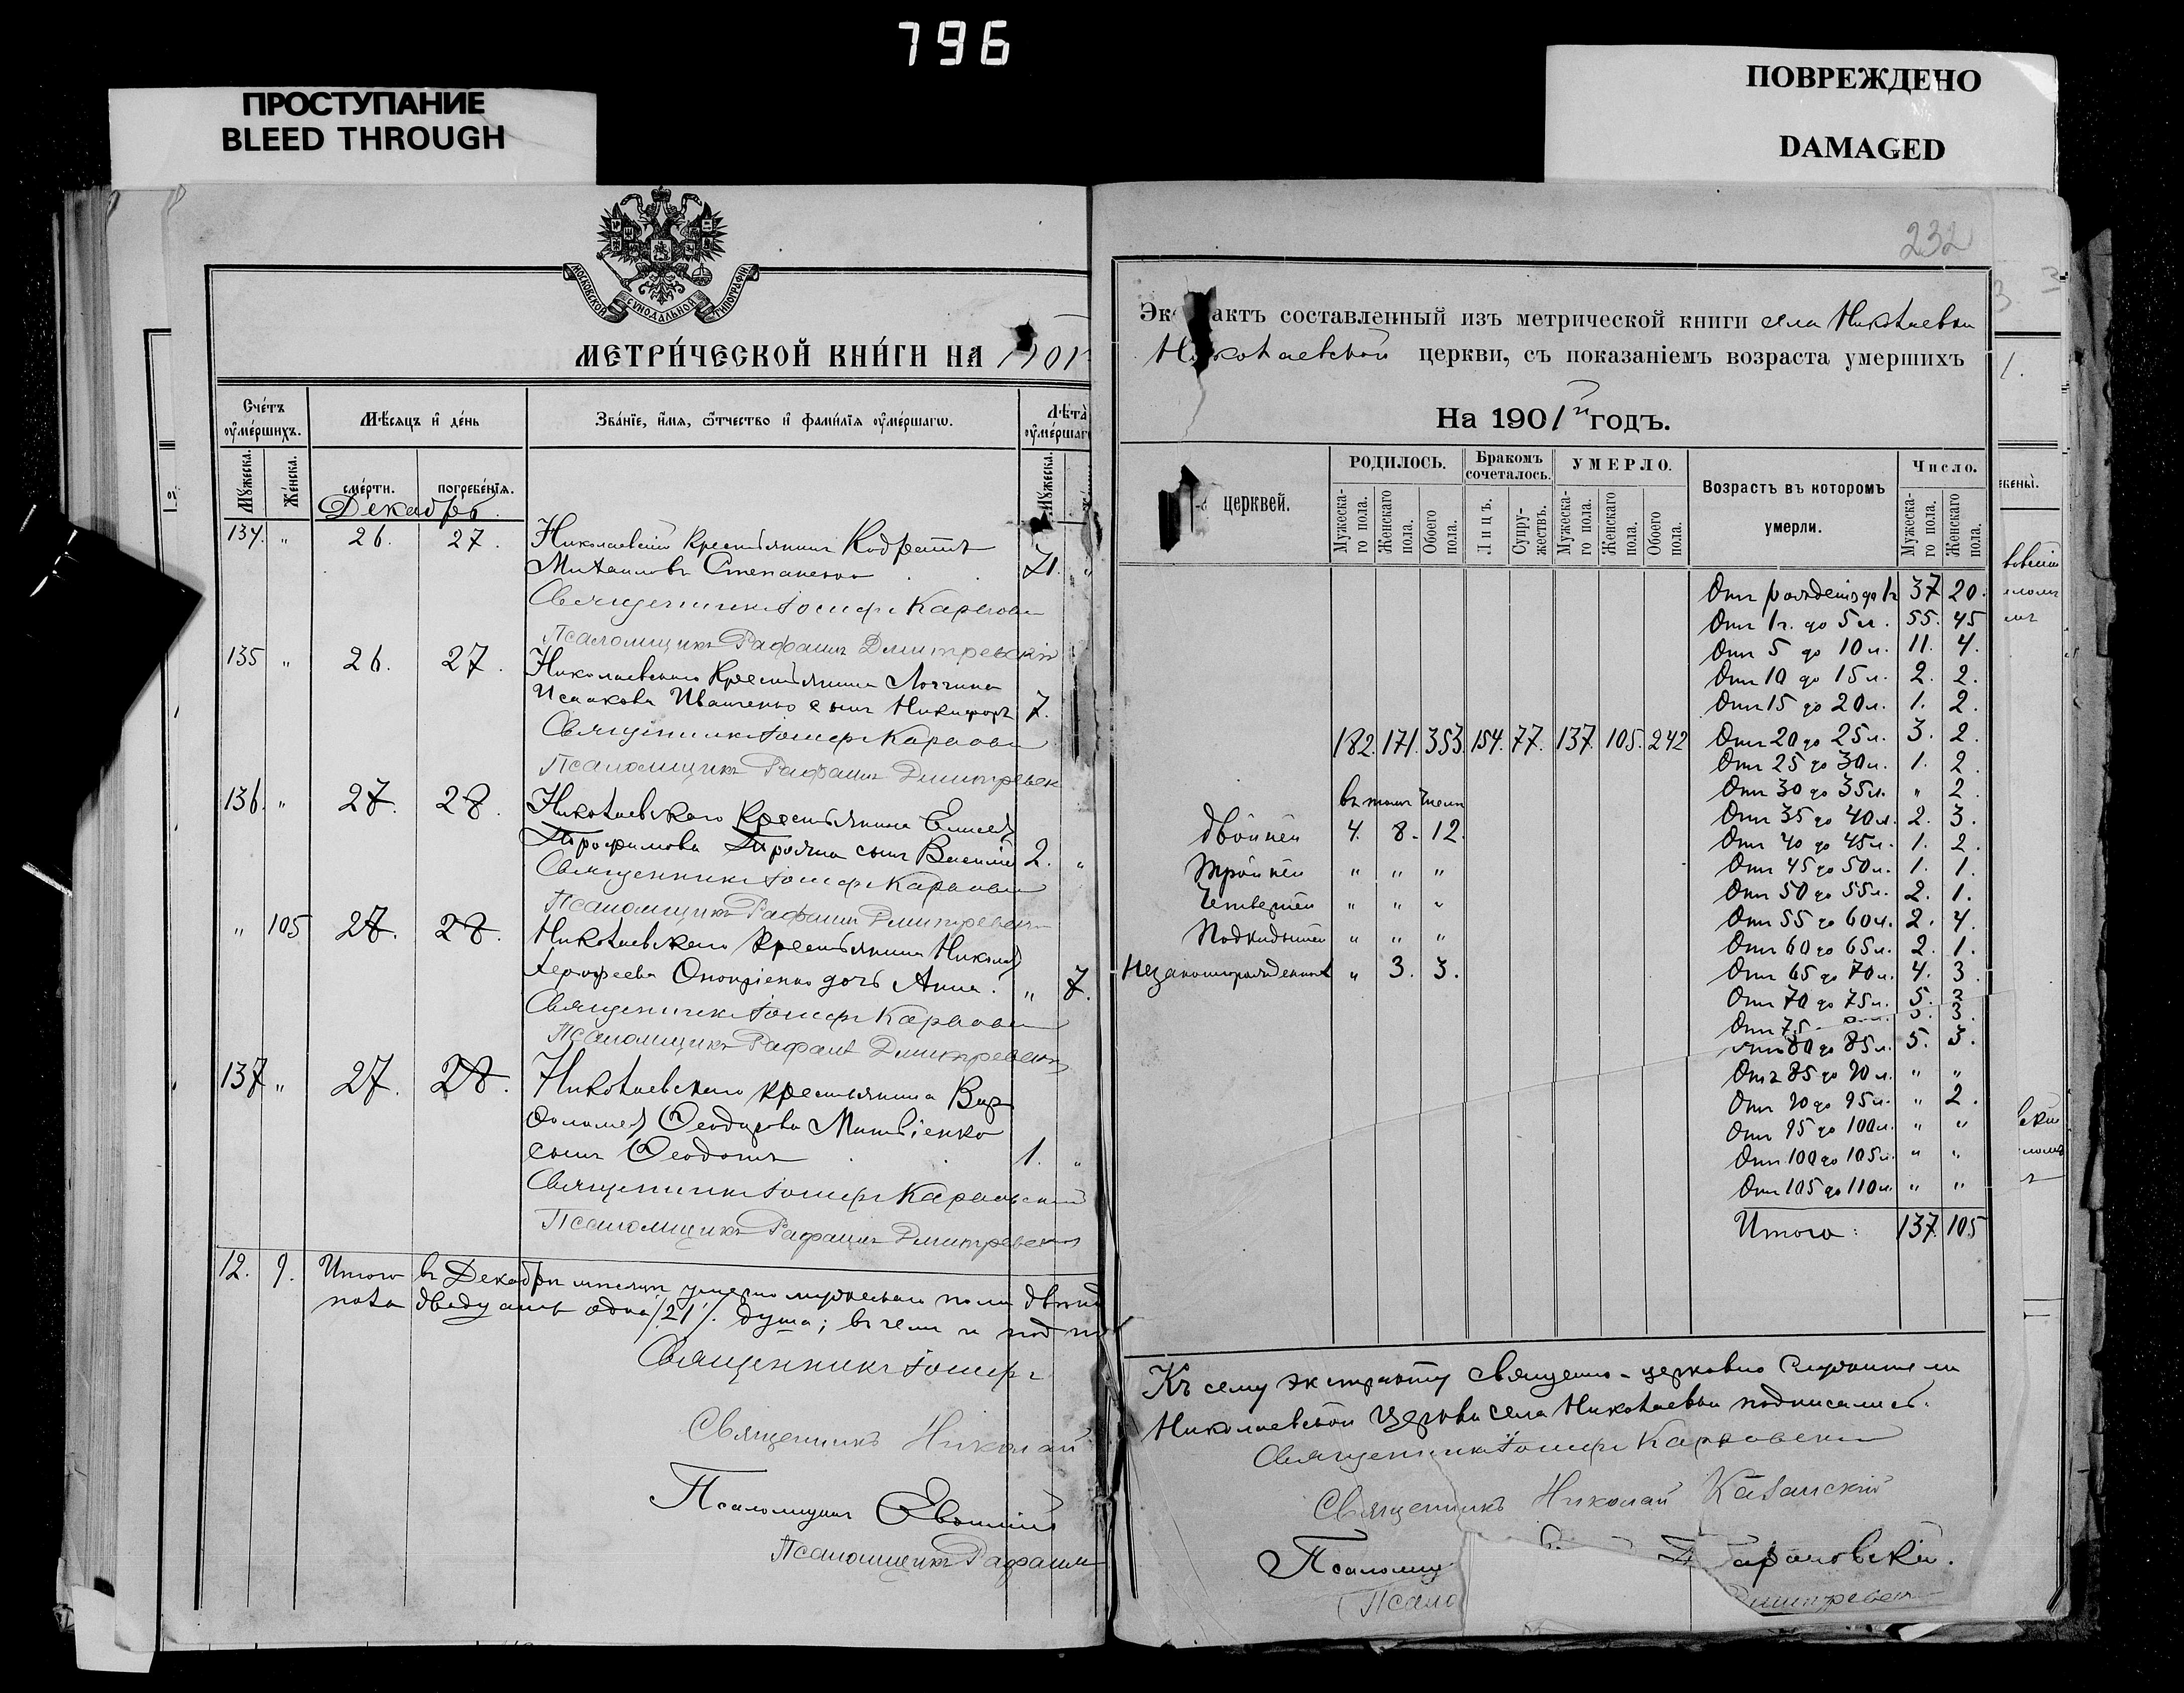 796
ПРОСТУПАНИЕ
BLEED THROUGH
ПОВРЕЖДЕНО
DAMAGED
МОСКОВСКОЙ СѴНОДАЛЬНОЙ ТИПОГРАФІИ
МЕТРИ́ЧЕСКОЙ КНИ́ГИ НА 1901
Сче́тъ ᲂу҆ме́ршихъ.
Мѣ́сяцъ и҆ де́нь
Зва́нїе, и҆́мя, ѻ҆́тчество и҆ фами́лїя ᲂу҆ме́ршагѡ.
Лѣ́та ᲂу҆ме́ршаг
Мꙋ́жеска.
Же́нска.
сме́рти.
погребе́нїя.
Мꙋ́жеска.
Декабрь.
134. " 26. 27. Николаевскій крестьянинъ Кодратъ
Михаиловъ Степаненко 71. "
Священникъ Іосифъ Карповс
Псаломщикъ Рафаилъ Дмитревскій
135 " 26. 27. Николаевскаго крестьянина Логгина
Исаакова Иващенко сынъ Никифоръ 7.
Священникъ Іосифъ Карповс
Псаломщикъ Рафаилъ Дмитревск
136. " 27. 28. Николаевскаго крестьянина Елисея
Трофимова Трояна сынъ Василій 2. "
Священникъ Іосифъ Карповс
Псаломщикъ Рафаилъ Дмитревск
" 105 27. 28. Николаевскаго крестьянина Николая
Оноприенко дочь Анна. " 7.
Священникъ Іосифъ Карповс
Псаломщикъ Рафаилъ Дмитревск
137 " 27. 28. Николаевскаго крестьянина Вар
ѳоломея Ѳеодорова Матвіенко
сынъ Ѳеодотъ 1. "
Священникъ Іосифъ Карповскій
Псаломщикъ Рафаилъ Дмитревск
12. 9. Итого въ Декабрѣ мѣсяцѣ умерло мужескаго пола двѣнад
пола двадцать одна /21/. душа; въ чемъ и под
Священникъ Іосифъ
Священникъ Николай
Псаломщикъ Евѳимій
Псаломщикъ Рафаилъ
232
Эк актъ составленный изъ метрической книги села Николаевки
Николаевской церкви, съ показаніемъ возраста умершихъ
На 1901й годъ.
церквей.
РОДИЛОСЬ.
Бракомъ сочеталось.
УМЕРЛО.
Возрастъ въ которомъ умерли.
Число.
Мужеска-го пола.
Женскаго пола.
Обоего пола.
Лицъ.
Супру-жествъ.
Мужеска-го пола.
Женскаго пола.
Обоего пола.
Мужеска-го пола.
Женскаго пола.
Отъ рожденія до 1г 37 20.
Отъ 1г. до 5 л. 55. 45
Отъ 5 до 10 л. 11. 4.
Отъ 10 до 15 л. 2. 2.
Отъ 15 до 20 л. 1. 2.
182. 171. 353. 154. 77. 137. 105. 242 Отъ 20 до 25 л. 3. 2.
Отъ 25 до 30 л. 1. 2
въ томъ числѣ Отъ 30 до 35 л. " 2.
Отъ 35 до 40 л. 2. 3.
двойней 4. 8. 12. Отъ 40 до 45 л. 1. 2.
Тройней " " " Отъ 45 до 50 л. 1. 1.
Четверней " " " Отъ 50 до 55 л. 2. 1.
Отъ 55 до 60 л. 2. 4.
Подкидышей " " " Отъ 60 до 65 л. 2. 1.
Незаконнорожденныхъ " 3. 3. Отъ 65 до 70 л. 4. 3.
Отъ 70 до 75 л. 5. 3
Отъ 75 л. 3.
Отъ 80 до 85 л. 5. 3.
Отъ 85 до 90 л. " "
Отъ 90 до 95 л. " 2.
Отъ 95 до 100 л. " "
Отъ 100 до 105 л. " "
Отъ 105 до 110 л. " "
Итого: 137. 105
Къ сему экстракту священно-церковно служители
Николаевской церкви села Николаевки подписались.
Священникъ Іосифъ Карповскі
Священникъ Николай Казанскій
Псаломщ арановскій.
Псало Дмитревск